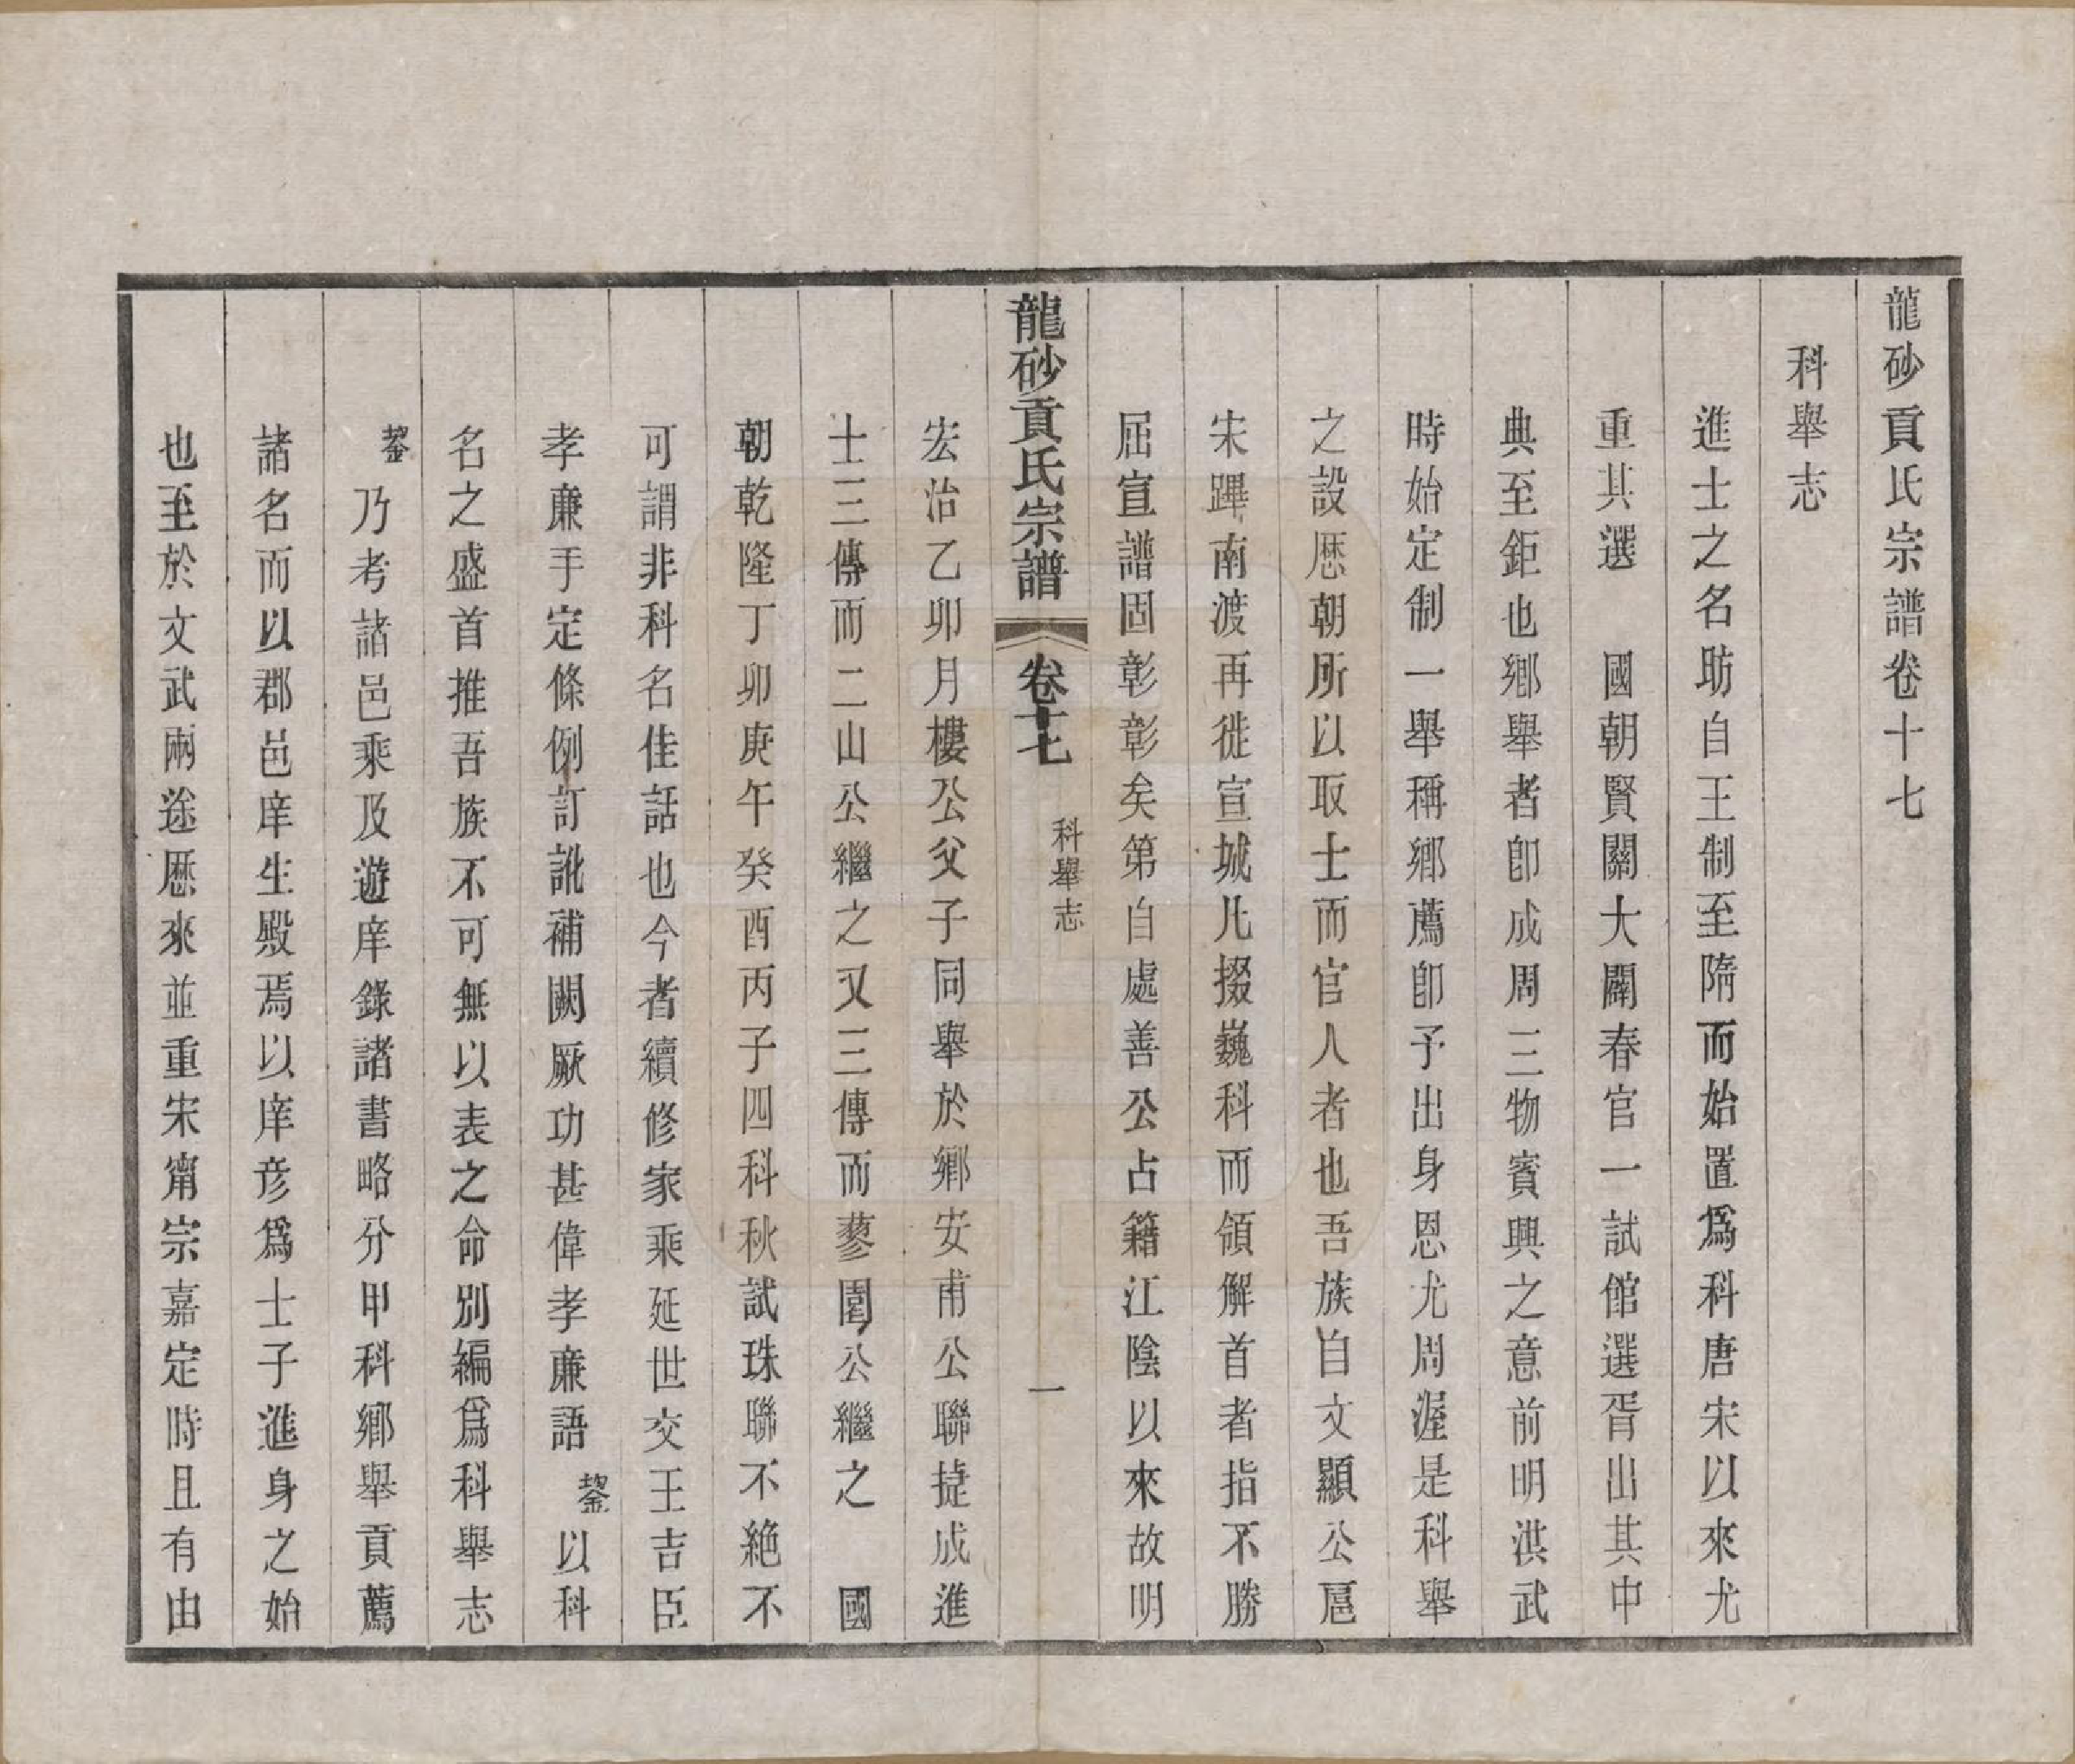 龍砂貢氏宗譜卷十七
科舉志
進士之名昉自王制至隋而始置爲科唐宋以來尤
重其選　國朝賢關大闢春官一試館選胥出其中
典至鉅也鄉舉者卽成周三物賓興之意前明洪武
時始定制一舉稱鄉薦卽予出身恩尤周渥是科舉
之設厯朝所以取士而官人者也吾族自文顯公扈
宋蹕南渡再徙宣城凡掇巍科而領解首者指不勝
屈宣譜固彰彰矣第自處善公占籍江陰以來故明
龍砂貢氏宗譜　卷十七　科舉志　一
宏治乙卯月樓公父子同舉於鄉安甫公聯捷成進
士三傳而二山公繼之又三傳而蓼圃公繼之　國
朝乾隆丁卯庚午癸酉丙子四科秋試珠聯不絕不
可謂非科名佳話也今者續修家乘延世交王吉臣
孝廉手定條例訂訛補闕厥功甚偉孝廉語鋆以科
名之盛首推吾族不可無以表之命別編爲科舉志
鋆乃考諸邑乘及遊庠錄諸書略分甲科鄉舉貢薦
諸名而以郡邑庠生殿焉以庠彥爲士子進身之始
也至於文武兩途厯來並重宋甯宗嘉定時且有由